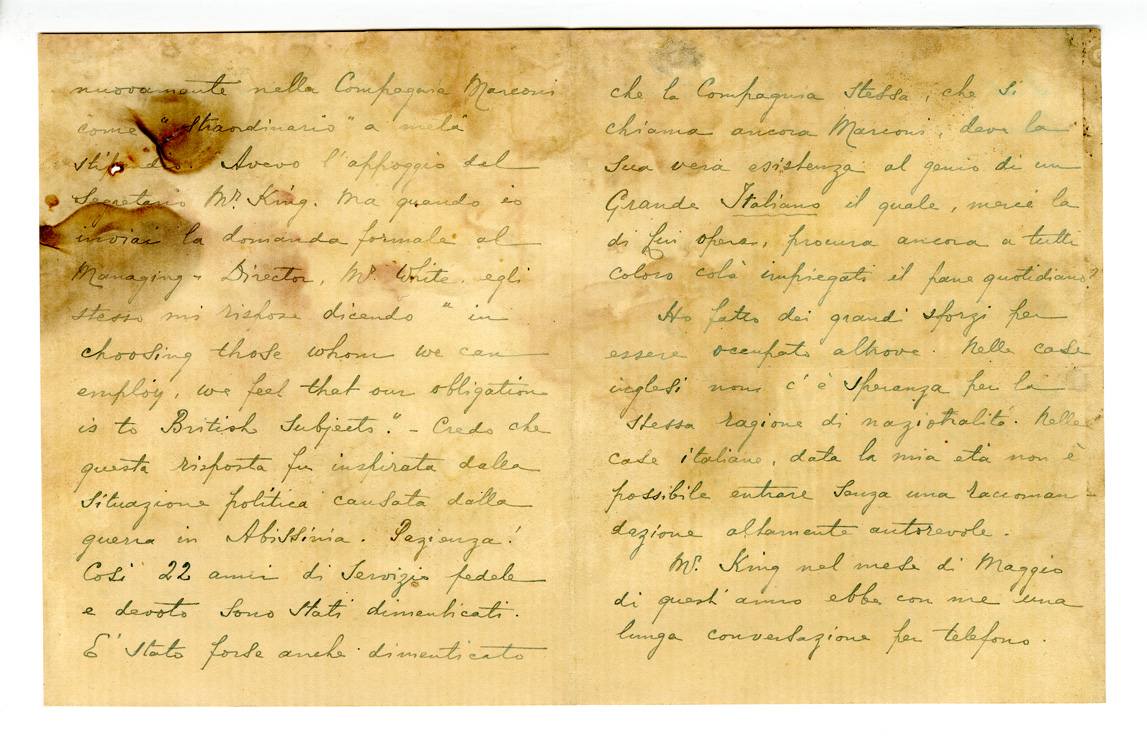 nuovamente nella Compagnia Marconi
come "straordinario" a metà
stipendio. Avevo l'appoggio del
Segretario Mr. King. Ma quando io
inviai la domanda formale al
Managing-Director, Mr. White, egli
stesso mi rispose dicendo "in
choosing those whom we can
employ, we feel that our obligation
is to British Subjects". - Credo che
questa risposta fu inspirata dalla
Situazione politica causata dalla
guerra in Abissinia. Pazienza!
Così 22 anni di Servizio fedele
e devoto sono stati dimenticati.
E' stato forse anche dimenticato
che la Compagnia stessa, che si
chiama ancora Marconi, deve la
sua vera esistenza al genio di un
Grande Italiano il quale, mercè la
di Lui opera, procura ancora a tutti
coloro colà impiegati il pane quotidiano?
Ho fatto dei grandi sforzi per
essere occupato altrove. Nelle case
inglesi non c'è speranza per la
stessa ragione di nazionalità. Nelle
case italiane, data la mia età non è
possibile entrare senza una raccoman-
dazione altamente autorevole.
Mr. King nel mese di Maggio
di quest'anno ebbe con me una
lunga conversazione per telefono.